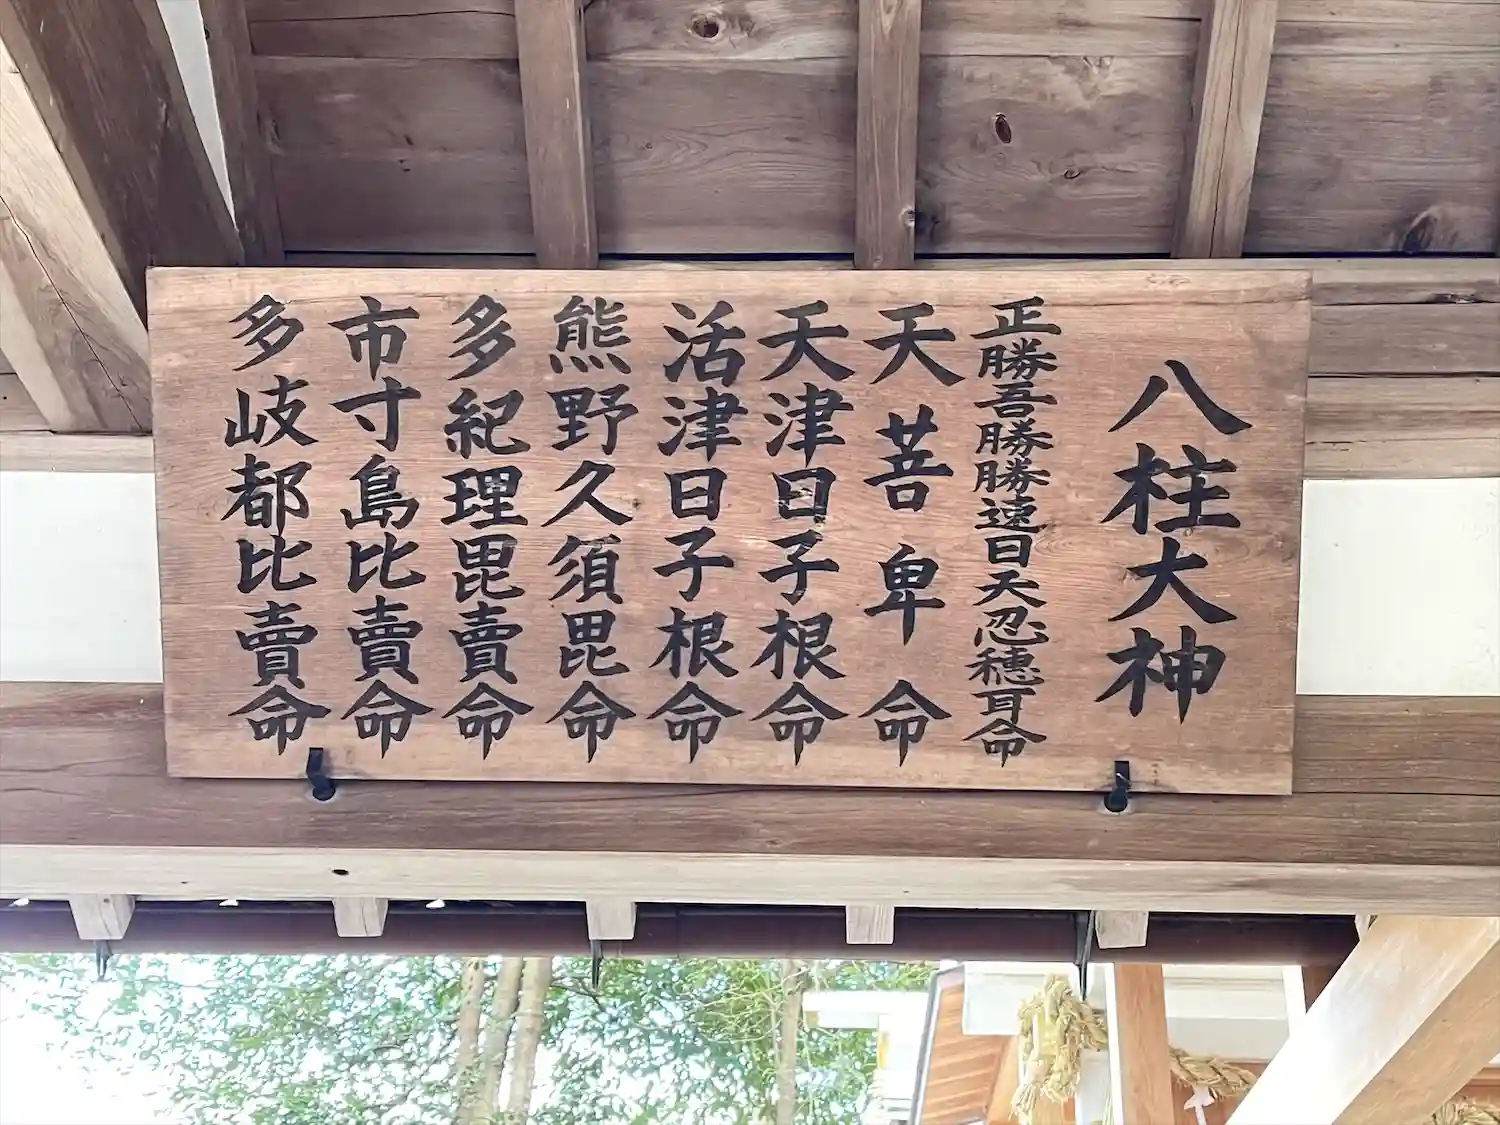 八柱大神
正勝吾勝勝速日天忍穗耳命
天菩卑命
天津日子根命
活津日子根命
熊野久須毘命
多紀理毘賣命
市寸島比賣命
多岐都比賣命